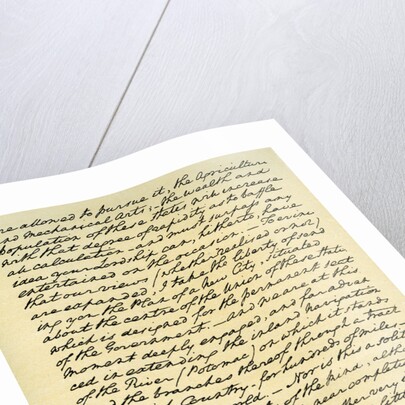 are allowed to pursue it, the Agriculture
and Mechanical Arts;- the wealth and
population of these States will increase
with that degree of rapidity as to baffle
all calculation - and must surpass any
idea your Lordship can, hitherto, have
entertained on the occasion - To evince,
that our views (whether realised or not)
are expanded, I take the liberty of send
ing you the Plan of a New City, situated
about the centre of the Union of these States
which is designed for the permanent seat
of the Government. - and we are at this
moment deeply engaged, and far advan
ced in extending the inland navigation
of the River (Potomac) on which it stands
and the branches thereof through a tract
Country, for hundreds of miles -
Nor is this a solit
of the kind, alth
near completi
very
litt